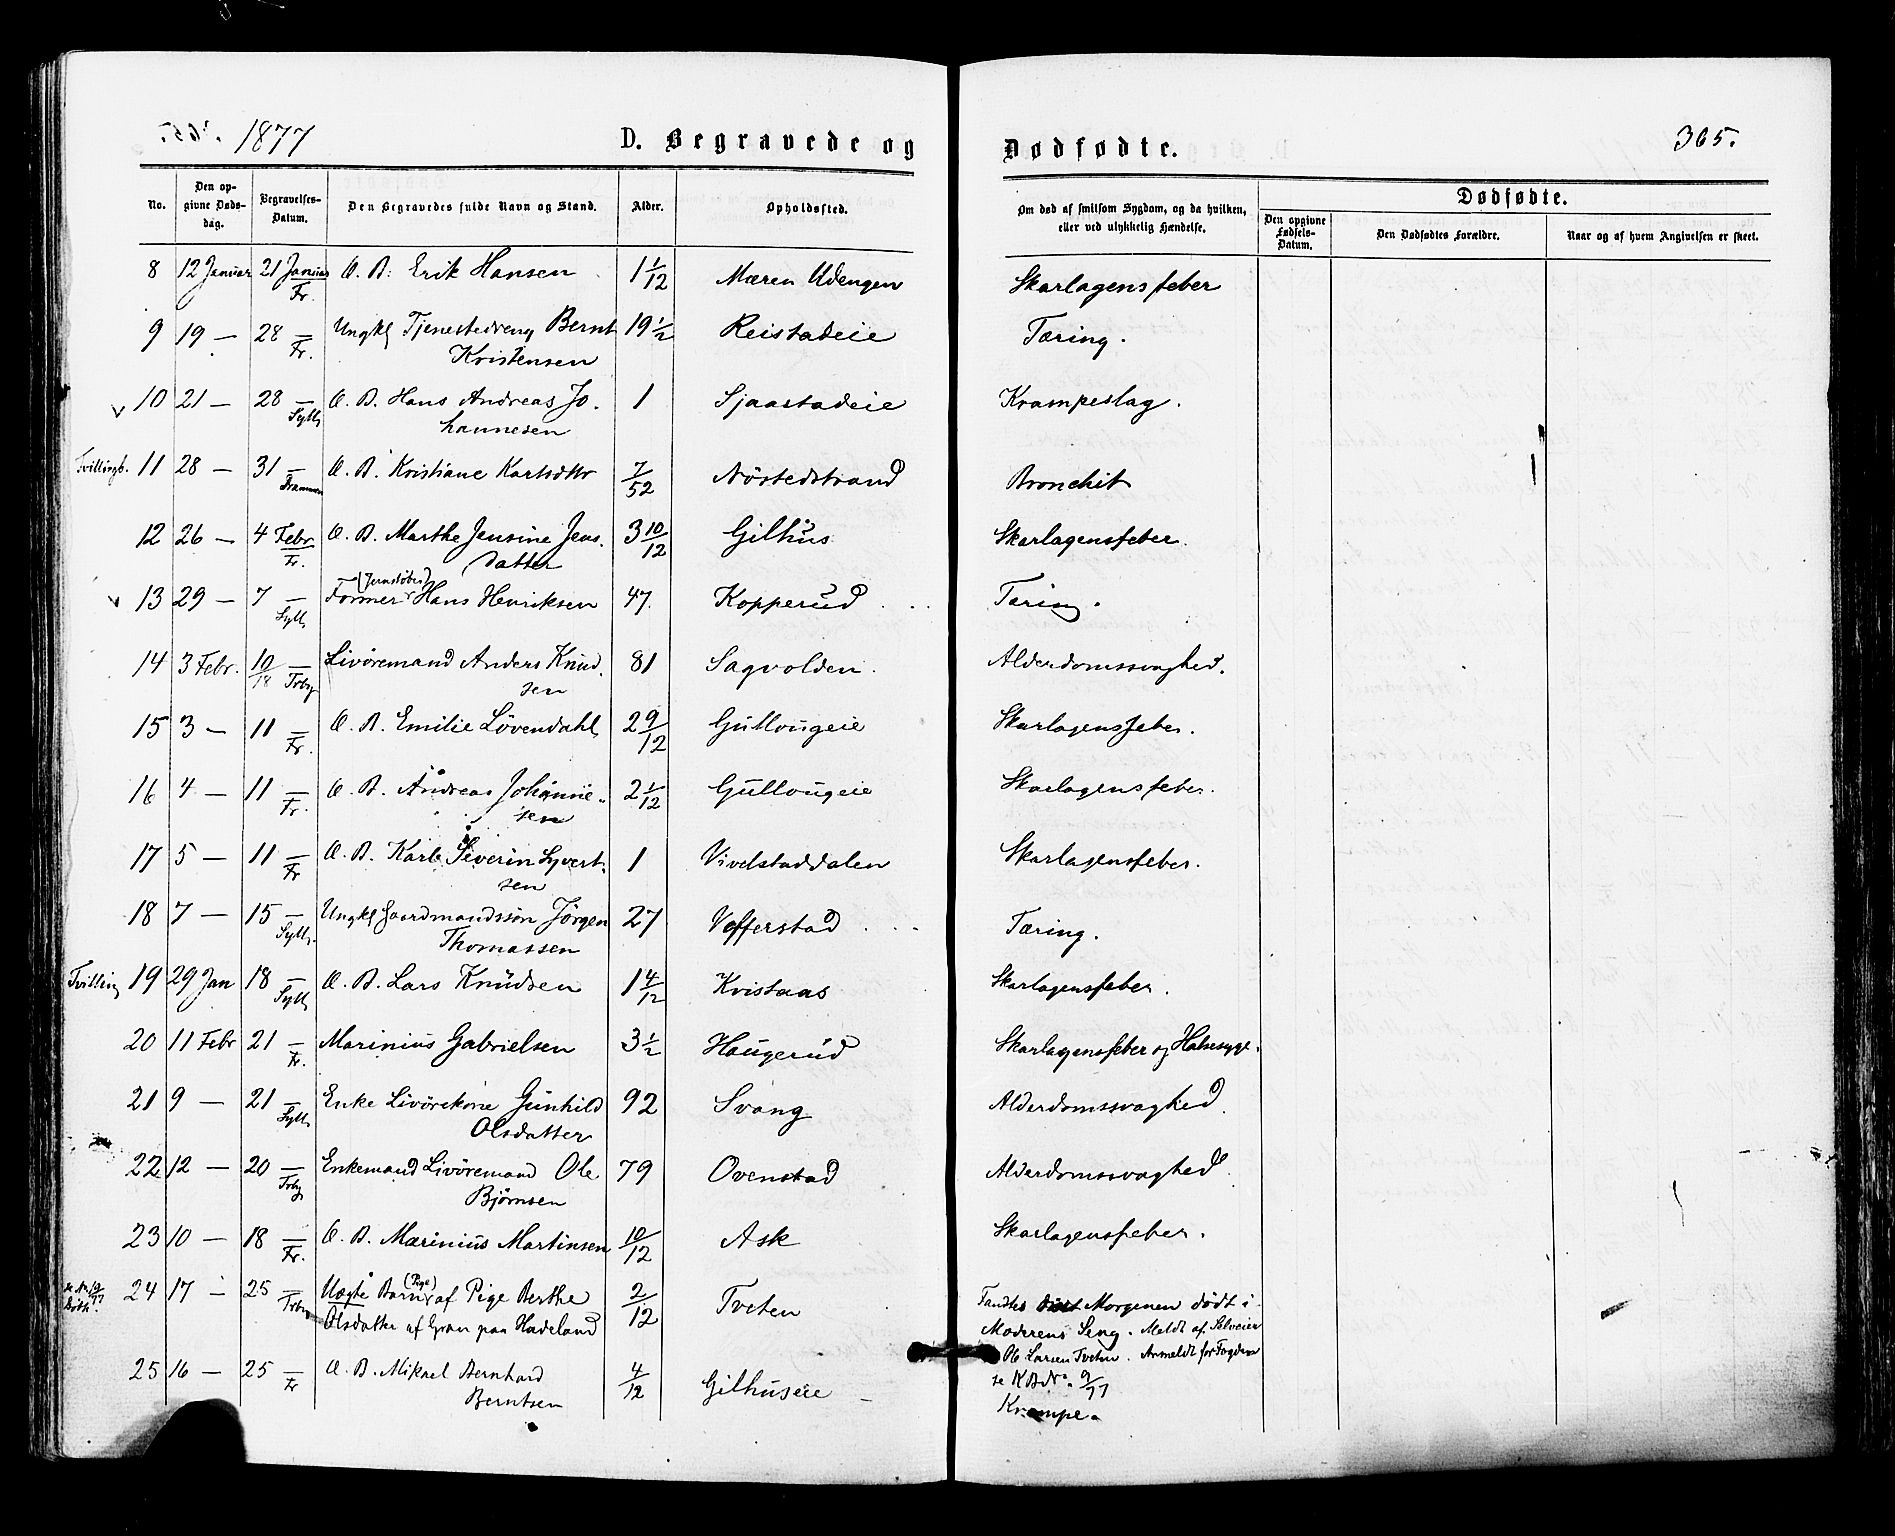 1877 D. Begravede og Dødfødte. 365.
No. Den opgivne Dødsdag. Begravelses-Datum. Den Begravedes fulde Navn og Stand. Alder. Opholdssted. Om død af smitsom Sygdom, og da hvilken, eller ved ulykkelig Hændelse. Dødfødte.
Den opgivne Fødsels-Datum. Den Dødfødtes Forældre. Naar og af hvem Angivelsen er skeet.
8 12 Januar 21 Januar Fr. Æ. B. Erik Hansen 1 1/12 Mæren Udengen Skarlagensfeber
9 19 — 28 — Fr. Ungkl Tjenestedreng Bernt 19 1/2 Reistadeie Tæring.
Kristensen
10 21 — 28 — Syll. Æ. B. Hans Andreas Jo- 1 Sjaastadeie Krampeslag.
hannesen
Tvillingb. 11 28 — 31 — Drammen Æ. B. Kristiane Karlsdttr 7/52 Nøstedstrand Bronchit
12 26 — 4 Febr Fr. Æ. B. Marthe Jensine Jens- 3 10/12 Gilhus Skarlagensfeber.
datter
(Jernstøber)
13 29 — 7 — Syll. Former Hans Henriksen 47. Kopperud Tæring.
14 3 Febr. 10/18 — Trby Livøremand Anders Knud- 81 Sagvolden. Alderdomssvaghed.
sen
15 3 — 11 — Fr. Æ. B. Emilie Løvendahl 2 9/12 Gullougeie Skarlagensfeber.
16 4 — 11 — Fr. Æ. B. Andreas Johanne- 2 1/12 Gullougeie Skarlagensfeber.
sen
17 5 — 11 — Fr Æ. B. Karl Siverin Syvert- 1 Vivelstaddalen Skarlagensfeber.
sen
18 7 — 15 — Syll. Ungkl Gaardmandssøn Jørgen 27 Vefferstad Tæring.
Thomassen
Tvilling 19 29 Jan 18 — Syll. Æ. B. Lars Knudsen 1 4/12 Kvistaas Skarlagensfeber.
20 11 Febr 21 — Fr. Marinius Gabrielsen 3 1/2 Haugerud Skarlagensfeber og Halssyge.
21 9 — 21 — Syll. Enke Livørekone Gunhild 92 Svang Alderdomssvaghed.
Olsdatter
22 12 — 20 — Trby Enkemand Livøremand Ole 79 Ovenstad Alderdomssvaghed.
Bjørnsen
23 10 — 18 — Fr. Æ. B. Marinius Martinsen 10/12 Ask Skarlagensfeber.
24 17 — 25 — Trby Uægte Barn (Pige) af Pige Berthe 2/12 Tveten Fandtes Morgenen dødt i
Olsdatter af Gran paa Hadeland Moderens Seng. Meldt af Selveier
Ole Larsen Tveten. Anmeldt for Fogden
se KB No. 9/77
25 16 — 25 — Fr Æ. B. Mikael Bernhard 4/12 Gilhuseie Krampe.
Berntsen